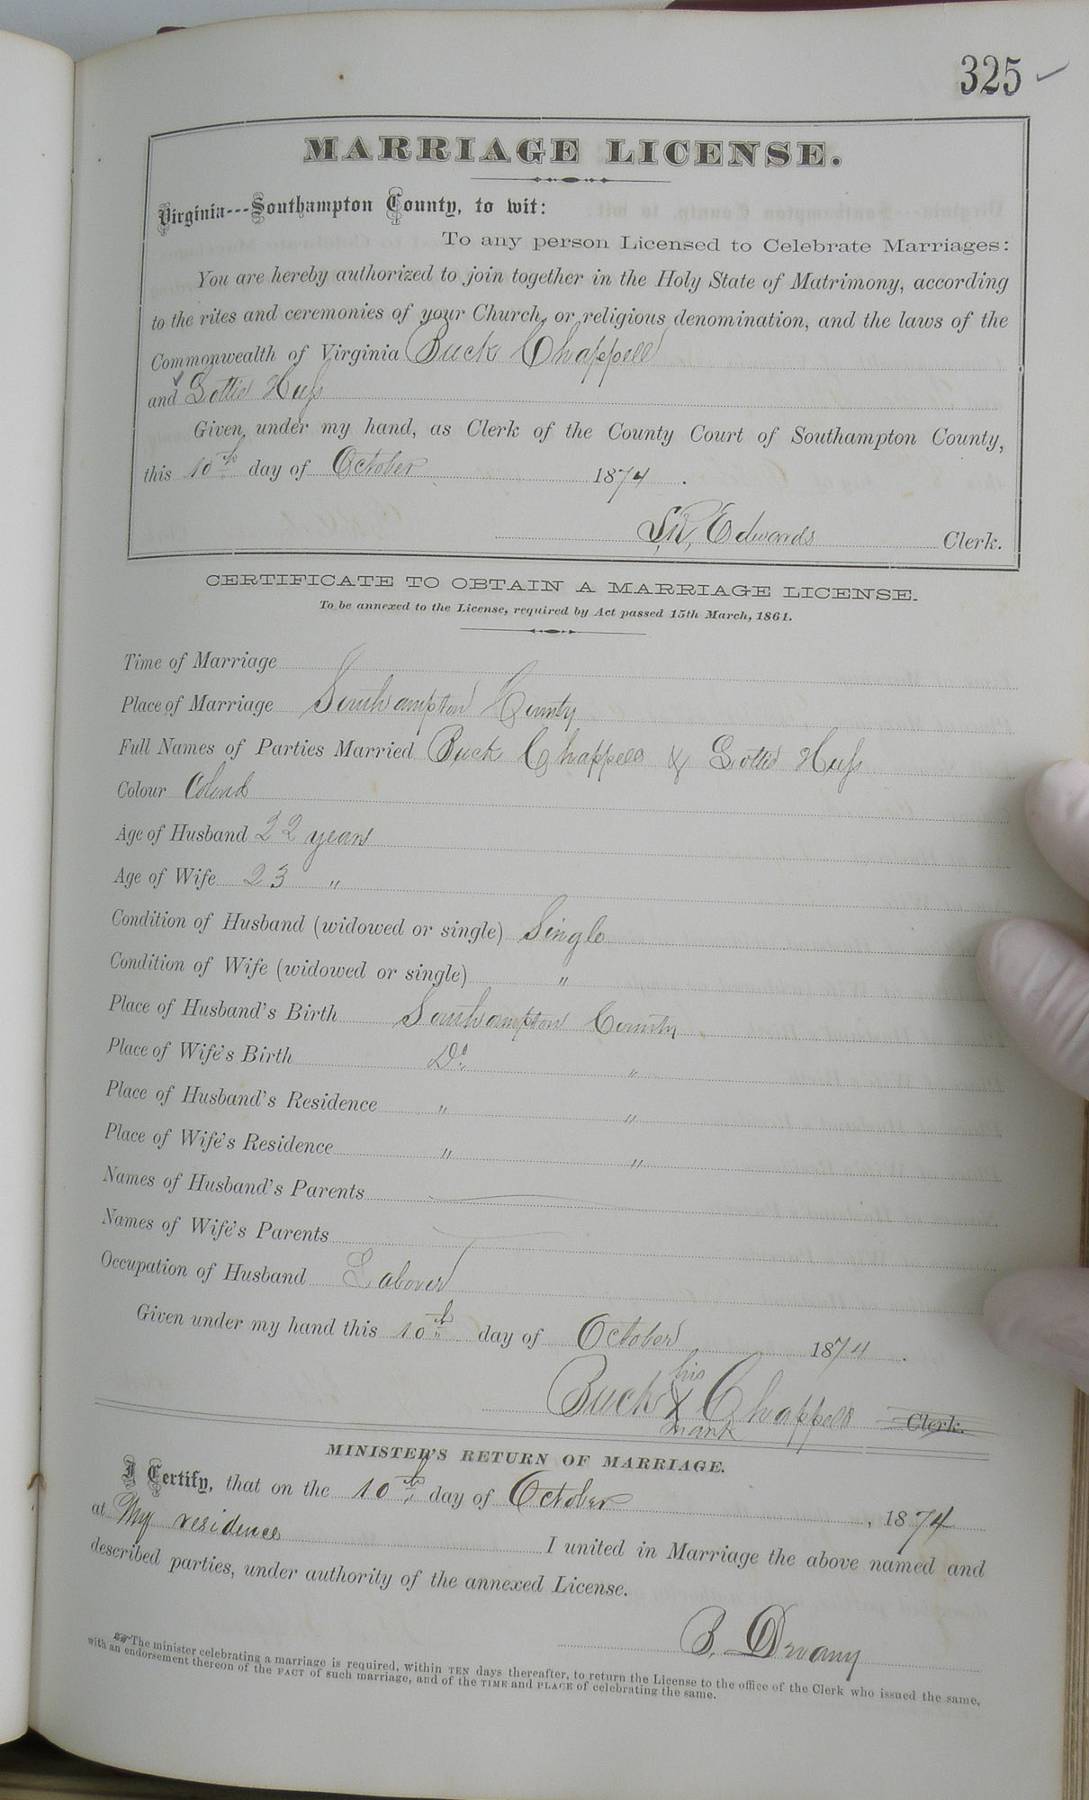 325
MARRIAGE LICENSE.
Virginia---Southampton County, to wit:
To any person Licensed to Celebrate Marriages:
You are hereby authorized to join together in the Holy State of Matrimony, according
to the rites and ceremonies of your Church, or religious denomination, and the laws of the
Commonwealth of Virginia Buck Chappell
and Lottie
Given under my hand, as Clerk of the County Court of Southampton County,
this 10th day of October 1874.
L.R. Edwards Clerk.
CERTIFICATE TO OBTAIN A MARRIAGE LICENSE.
To be annexed to the License, required by Act passed 15th March, 1861.
Time of Marriage
Place of Marriage Southampton County
Full Names of Parties Married Buck Chappell & Lottie
Colour Colored
Age of Husband 22 years
Age of Wife 23 "
Condition of Husband (widowed or single) Single
Condition of Wife (widowed or single) "
Place of Husband's Birth Southampton County
Place of Wife's Birth Do "
Place of Husband's Residence " "
Place of Wife's Residence " "
Names of Husband's Parents
Names of Wife's Parents
Occupation of Husband Laborer
Given under my hand this 10th day of October 1874.
his
Buck X Chappell Clerk.
mark
MINISTER'S RETURN OF MARRIAGE.
I Certify, that on the 10th day of October, 1874
at My residence I united in Marriage the above named and
described parties, under authority of the annexed License.
The minister celebrating a marriage is required, within TEN days thereafter, to return the License to the office of the Clerk who issued the same,
with an endorsement thereon of the FACT of such marriage, and of the TIME and PLACE of celebrating the same.